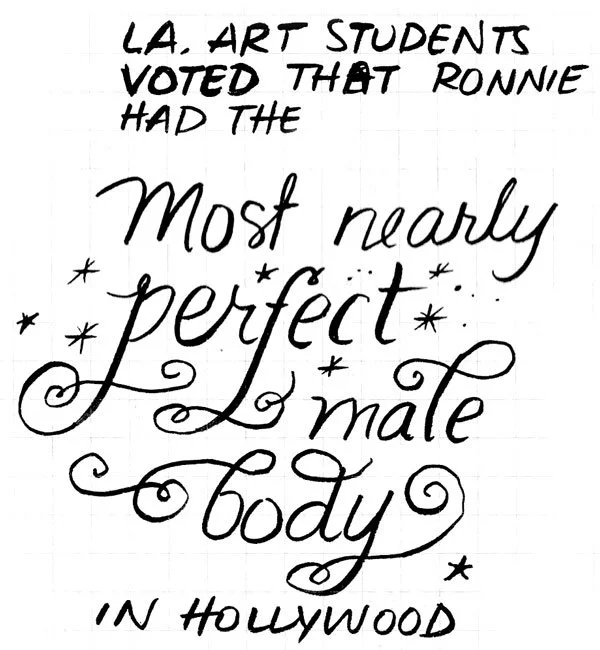 LA. ART STUDENTS
VOTED THAT RONNIE
HAD THE
Most nearly
perfect
male
body
IN HOLLYWOOD